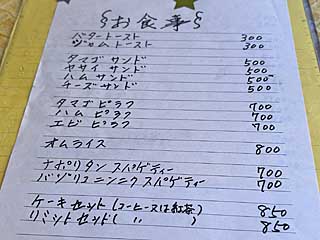 お食事
バタートースト 300
ジャムトースト 300
タマゴ サンド 500
ヤサイ サンド 500
ハム サンド 500
チーズ サンド 500
タマゴ ピラフ 700
ハム ピラフ 700
エビ ピラフ 700
オムライス 800
ナポリタン スパゲティー 700
バジリコニンニクスパゲティー 700
ケーキセット(コーヒー又は紅茶) 850
リミットセット( 〃 ) 850